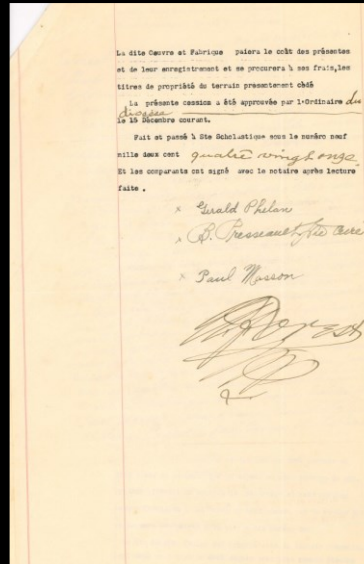 La dite Oeuvre et Fabrique paiera le coût des présentes
et de leur enregistrement et se procurera à ses frais,les
titres de propriété du terrain présentement cédé
La présente cession a été approuvée par l'Ordinaire du
diocèse
le 15 Décembre courant.
Fait et passé à Ste Scholastique sous le numéro neuf
mille deux cent quatre vingt onze.
Et les comparants ont signé avec le notaire après lecture
faite .
x Gerald Phelan
x B. Presseault Ptre Curé
x Paul Masson